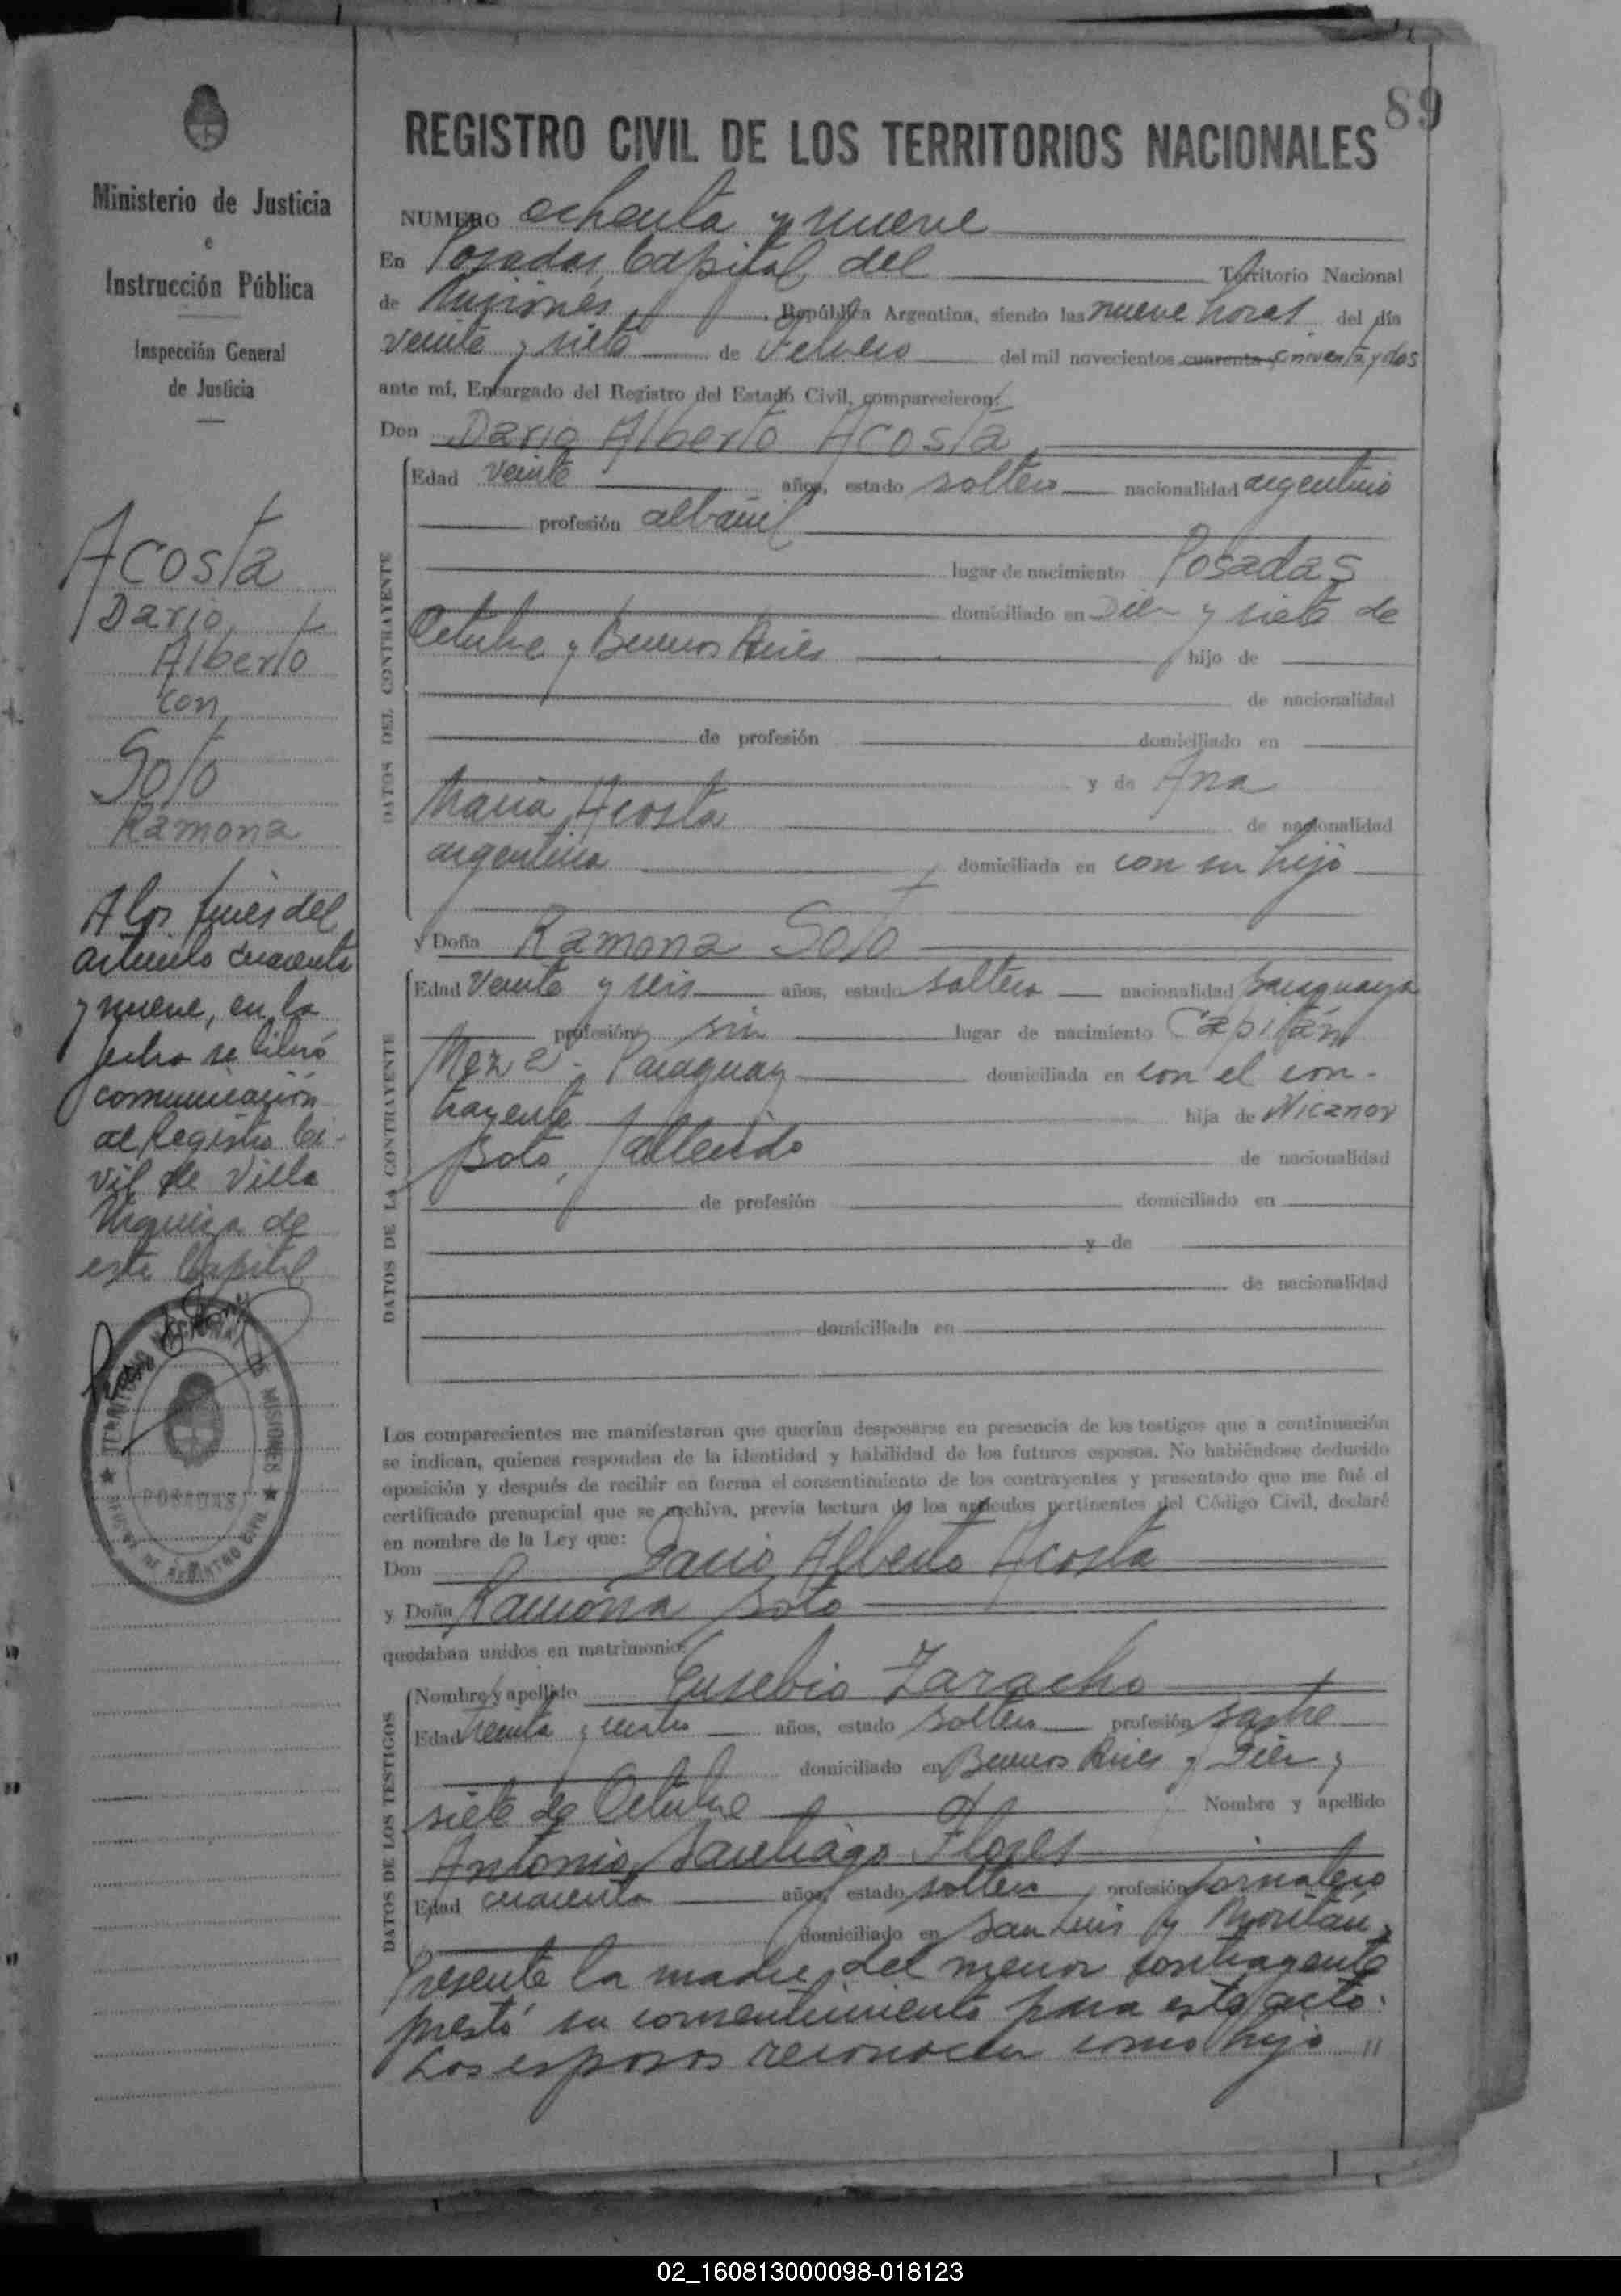 89
Ministerio de Justicia
e
Instrucción Pública
Inspección General
de Justicia
Acosta
Dario
Alberto
con
Soto
Ramona
A los fines del
artículo cuarenta
y nueve, en la
fecha se libró
comunicación
al Registro Ci-
vil de Villa
Urquiza de
esta Capital
TERRITORIO NACIONAL DE MISIONES
POSADAS
DE REGISTRO CIVIL
REGISTRO CIVIL DE LOS TERRITORIOS NACIONALES
NUMERO ochenta y nueve
En Posadas, Capital del Territorio Nacional
de Misiones, República Argentina, siendo las nueve horas del día
veinte y siete de Febrero del mil novecientos cuarenta y cincuenta y dos
ante mí, Encargado del Registro del Estado Civil, comparecieron:
Don Dario Alberto Acosta
DATOS DEL CONTRAYENTE
Edad veinte años, estado soltero nacionalidad argentino
profesión albañil
lugar de nacimiento Posadas
domiciliado en Diez y siete de
Octubre y Buenos Aires hijo de
de nacionalidad
de profesión domiciliado en
y de Ana
María Acosta de nacionalidad
argentina domiciliada en con su hijo
y Doña Ramona Soto
DATOS DE LA CONTRAYENTE
Edad veinte y seis años, estado soltera nacionalidad paraguaya
profesión sin lugar de nacimiento Capitán
Meza - Paraguay domiciliada en con el con-
trayente hija de Nicanor
Soto, fallecido de nacionalidad
de profesión domiciliado en
y de
de nacionalidad
domiciliada en
Los comparecientes me manifestaron que querían desposarse en presencia de los testigos que a continuación
se indican, quienes responden de la identidad y habilidad de los futuros esposos. No habiéndose deducido
oposición y después de recibir en forma el consentimiento de los contrayentes y presentado que me fué el
certificado prenupcial que se archiva, previa lectura de los artículos pertinentes del Código Civil, declaré
en nombre de la Ley que:
Don Dario Alberto Acosta
y Doña Ramona Soto
quedaban unidos en matrimonio.
DATOS DE LOS TESTIGOS
Nombre y apellido Eusebio Zaracho
Edad treinta y cuatro años, estado soltero profesión sastre
domiciliado en Buenos Aires y Diez y
siete de Octubre Nombre y apellido
Antonio Santiago Flores
Edad cuarenta años, estado soltero profesión jornalero
domiciliado en San Luis y
Presente la madre del menor contrayente
prestó su consentimiento para este acto.
Los esposos reconocen como hijo //
02_160813000098-018123